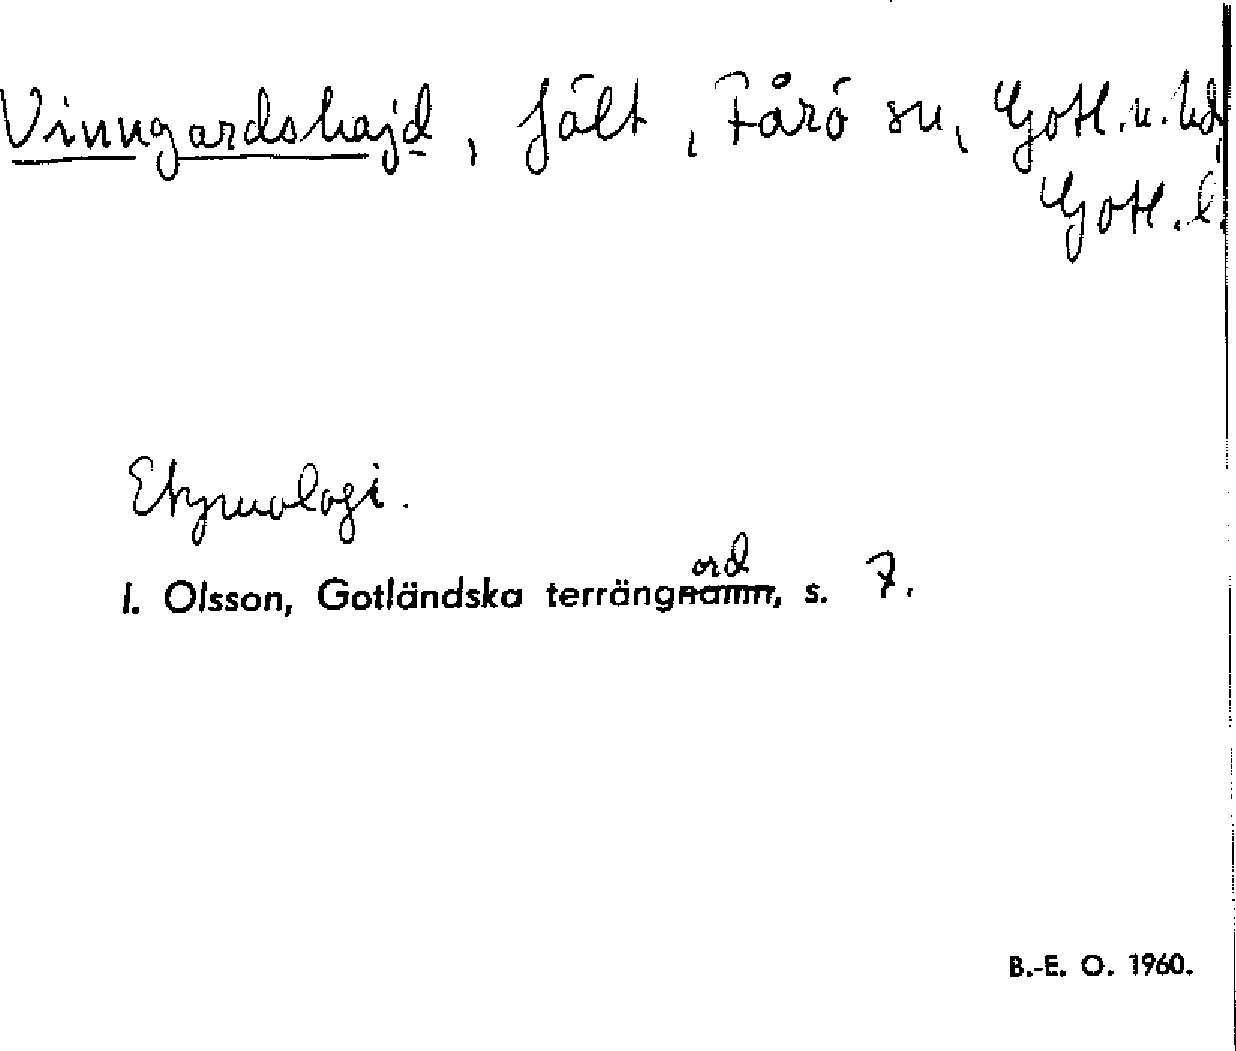 Vinngardshajd, fält, Fårö sn, Gotl. n. hd,
Gotl. l.
Etymologi.
I. Olsson, Gotländska terrängnamn, s. 7.
ord
B.-E. O. 1960.